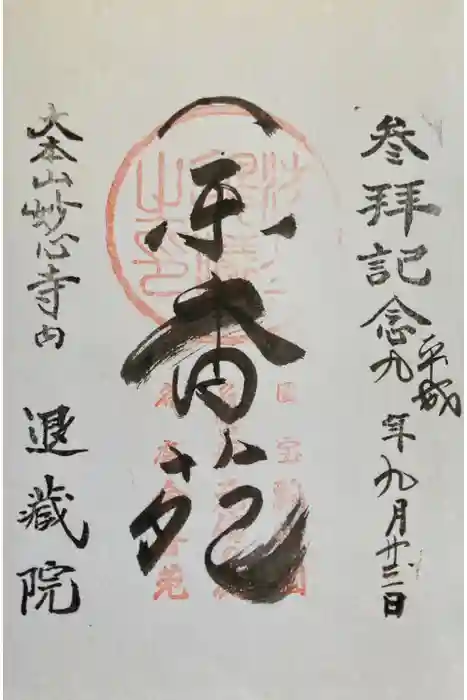 参拝記念
平成九年九月廿三日
余香苑
大本山妙心寺内
退蔵院